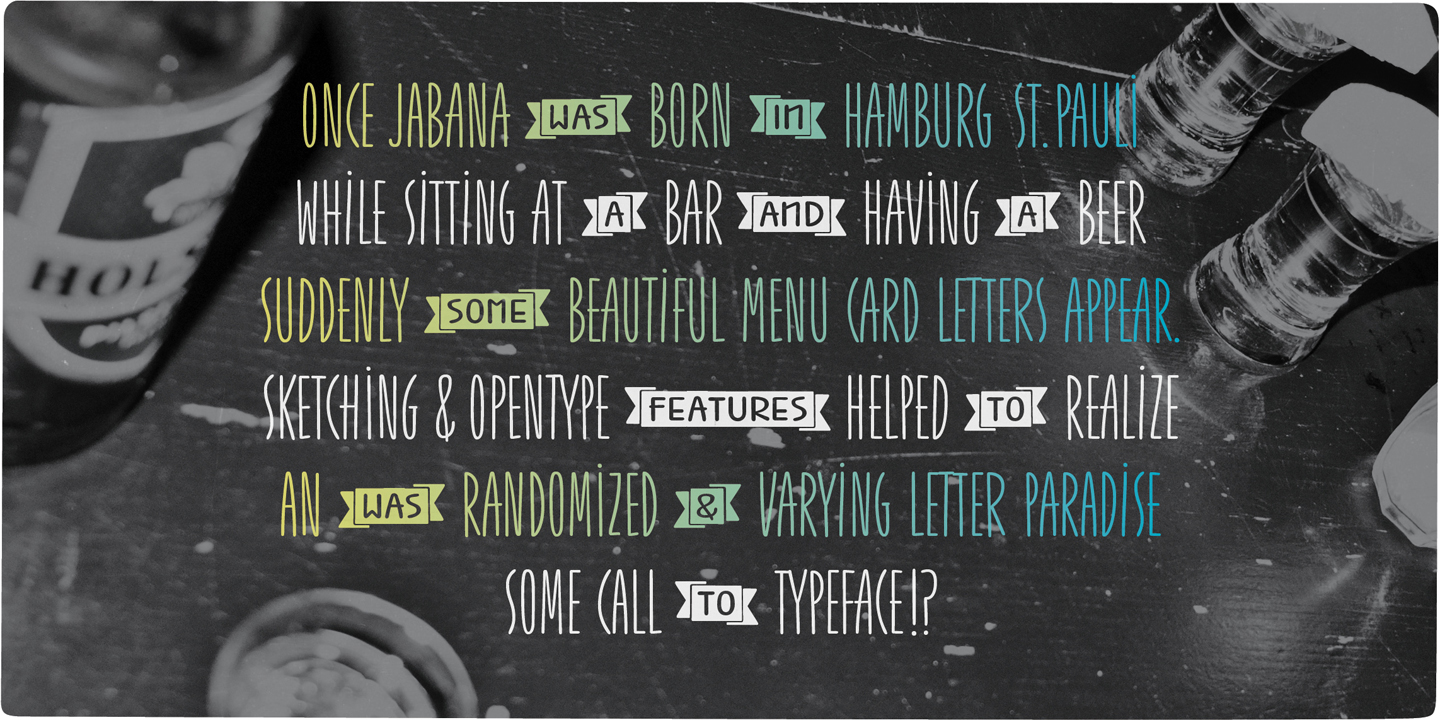 ONCE JABANA WAS BORN IN HAMBURG ST. PAULI
WHILE SITTING AT A BAR AND HAVING A BEER
SUDDENLY SOME BEAUTIFUL MENU CARD LETTERS APPEAR.
SKETCHING & OPENTYPE FEATURES HELPED TO REALIZE
AN WAS RANDOMIZED & VARYING LETTER PARADISE
SOME CALL TO TYPEFACE!?